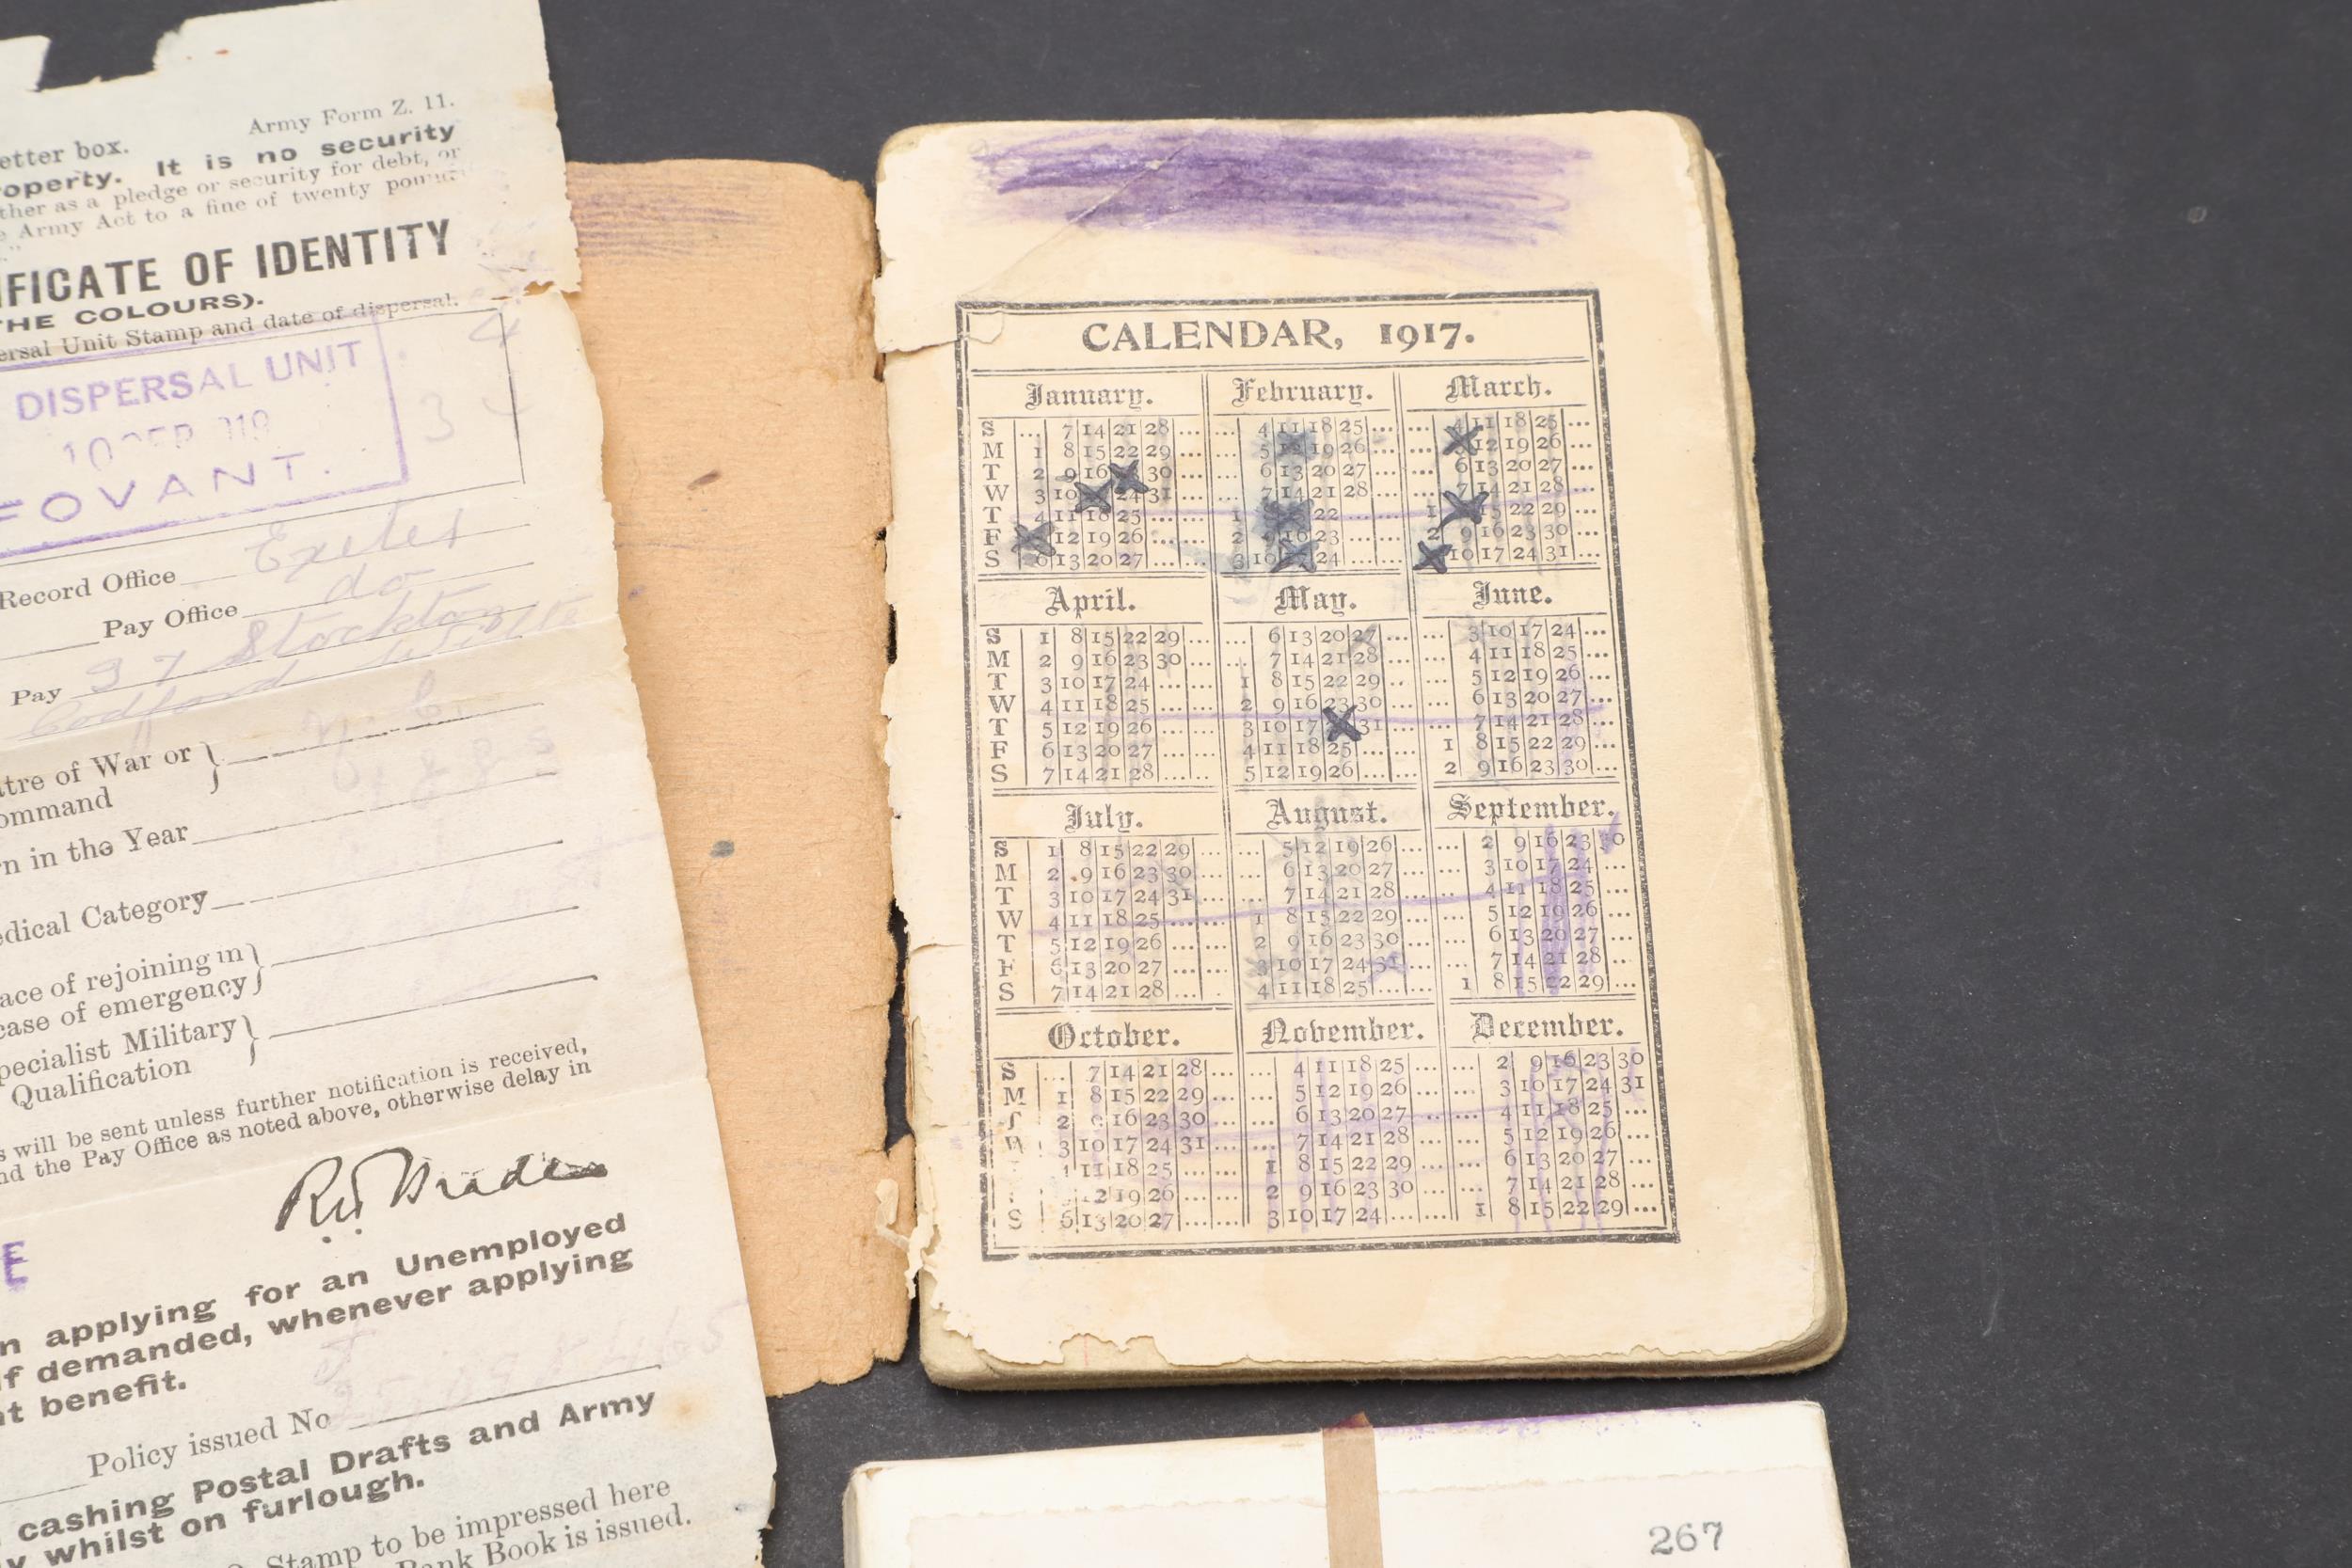 Army Form Z. 11.
etter box.
operty. It is no security
ther as a pledge or security for debt, or
e Army Act to a fine of twenty
IFICATE OF IDENTITY
THE COLOURS).
ersal Unit Stamp and date of dispersal.
DISPERSAL UNIT
FOVANT.
Record Office Exeter
Pay Office do
Pay 37 Stockton
Codford
tre of War or
ommand
n in the Year
edical Category
ace of rejoining in
case of emergency
pecialist Military
Qualification
s will be sent unless further notification is received,
nd the Pay Office as noted above, otherwise delay in
E
n applying for an Unemployed
if demanded, whenever applying
t benefit.
Policy issued No
cashing Postal Drafts and Army
y whilst on furlough.
Stamp to be impressed here
Bank Book is issued.
CALENDAR, 1917.
January. February. March.
S ... 7 14 21 28 ... ... 4 11 18 25 ... ... 4 11 18 25 ...
M 1 8 15 22 29 ... ... 5 12 19 26 ... ... 12 19 26 ...
T 2 9 16 30 ... ... 6 13 20 27 ... ... 6 13 20 27 ...
W 3 10 24 31 ... ... 7 14 21 28 ... ... 7 14 21 28 ...
T 4 11 18 25 ... ... 1 22 ... ... 1 15 22 29 ...
F 12 19 26 ... ... 2 9 16 23 ... ... 2 9 16 23 30 ...
S 6 13 20 27 ... ... 3 10 24 ... ... 10 17 24 31 ...
April. May. June.
S 1 8 15 22 29 ... ... 6 13 20 27 ... ... 3 10 17 24 ...
M 2 9 16 23 30 ... ... 7 14 21 28 ... ... 4 11 18 25 ...
T 3 10 17 24 ... ... 1 8 15 22 29 ... ... 5 12 19 26 ...
W 4 11 18 25 ... ... 2 9 16 23 30 ... ... 6 13 20 27 ...
T 5 12 19 26 ... ... 3 10 17 31 ... ... 7 14 21 28 ...
F 6 13 20 27 ... ... 4 11 18 25 ... ... 1 8 15 22 29 ...
S 7 14 21 28 ... ... 5 12 19 26 ... ... 2 9 16 23 30 ...
July. August. September.
S 1 8 15 22 29 ... ... 5 12 19 26 ... ... 2 9 16 23 30
M 2 9 16 23 30 ... ... 6 13 20 27 ... ... 3 10 17 24 ...
T 3 10 17 24 31 ... ... 7 14 21 28 ... ... 4 11 18 25 ...
W 4 11 18 25 ... ... 1 8 15 22 29 ... ... 5 12 19 26 ...
T 5 12 19 26 ... ... 2 9 16 23 30 ... ... 6 13 20 27 ...
F 6 13 20 27 ... ... 3 10 17 24 31 ... ... 7 14 21 28 ...
S 7 14 21 28 ... ... 4 11 18 25 ... ... 1 8 15 22 29 ...
October. November. December.
S ... 7 14 21 28 ... ... 4 11 18 25 ... ... 2 9 16 23 30
M 1 8 15 22 29 ... ... 5 12 19 26 ... ... 3 10 17 24 31
T 2 9 16 23 30 ... ... 6 13 20 27 ... ... 4 11 18 25 ...
W 3 10 17 24 31 ... ... 7 14 21 28 ... ... 5 12 19 26 ...
4 11 18 25 ... ... 1 8 15 22 29 ... ... 6 13 20 27 ...
12 19 26 ... ... 2 9 16 23 30 ... ... 7 14 21 28 ...
S 6 13 20 27 ... ... 3 10 17 24 ... ... 1 8 15 22 29 ...
267